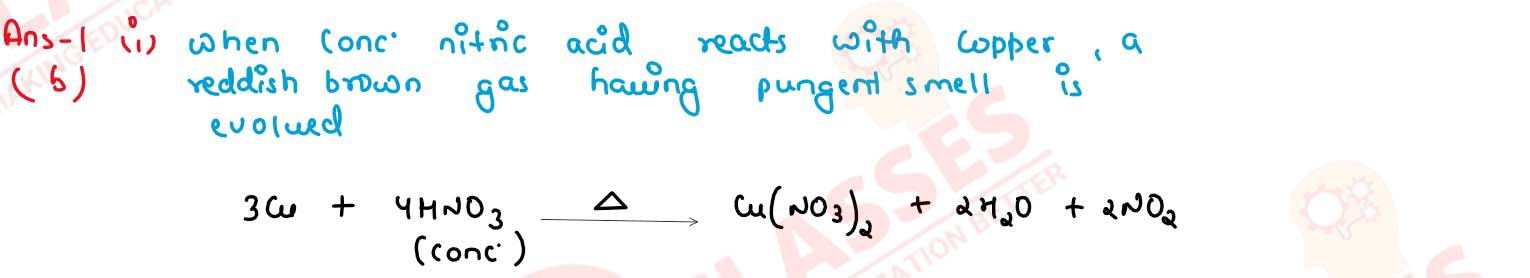 Ans-1 (i) when conc. nitric acid reacts with copper, a
(b) reddish brown gas having pungent smell is
evolved
3Cu + 4HNO3 △ Cu(NO3)2 + 2H2O + 2NO2
(conc.)